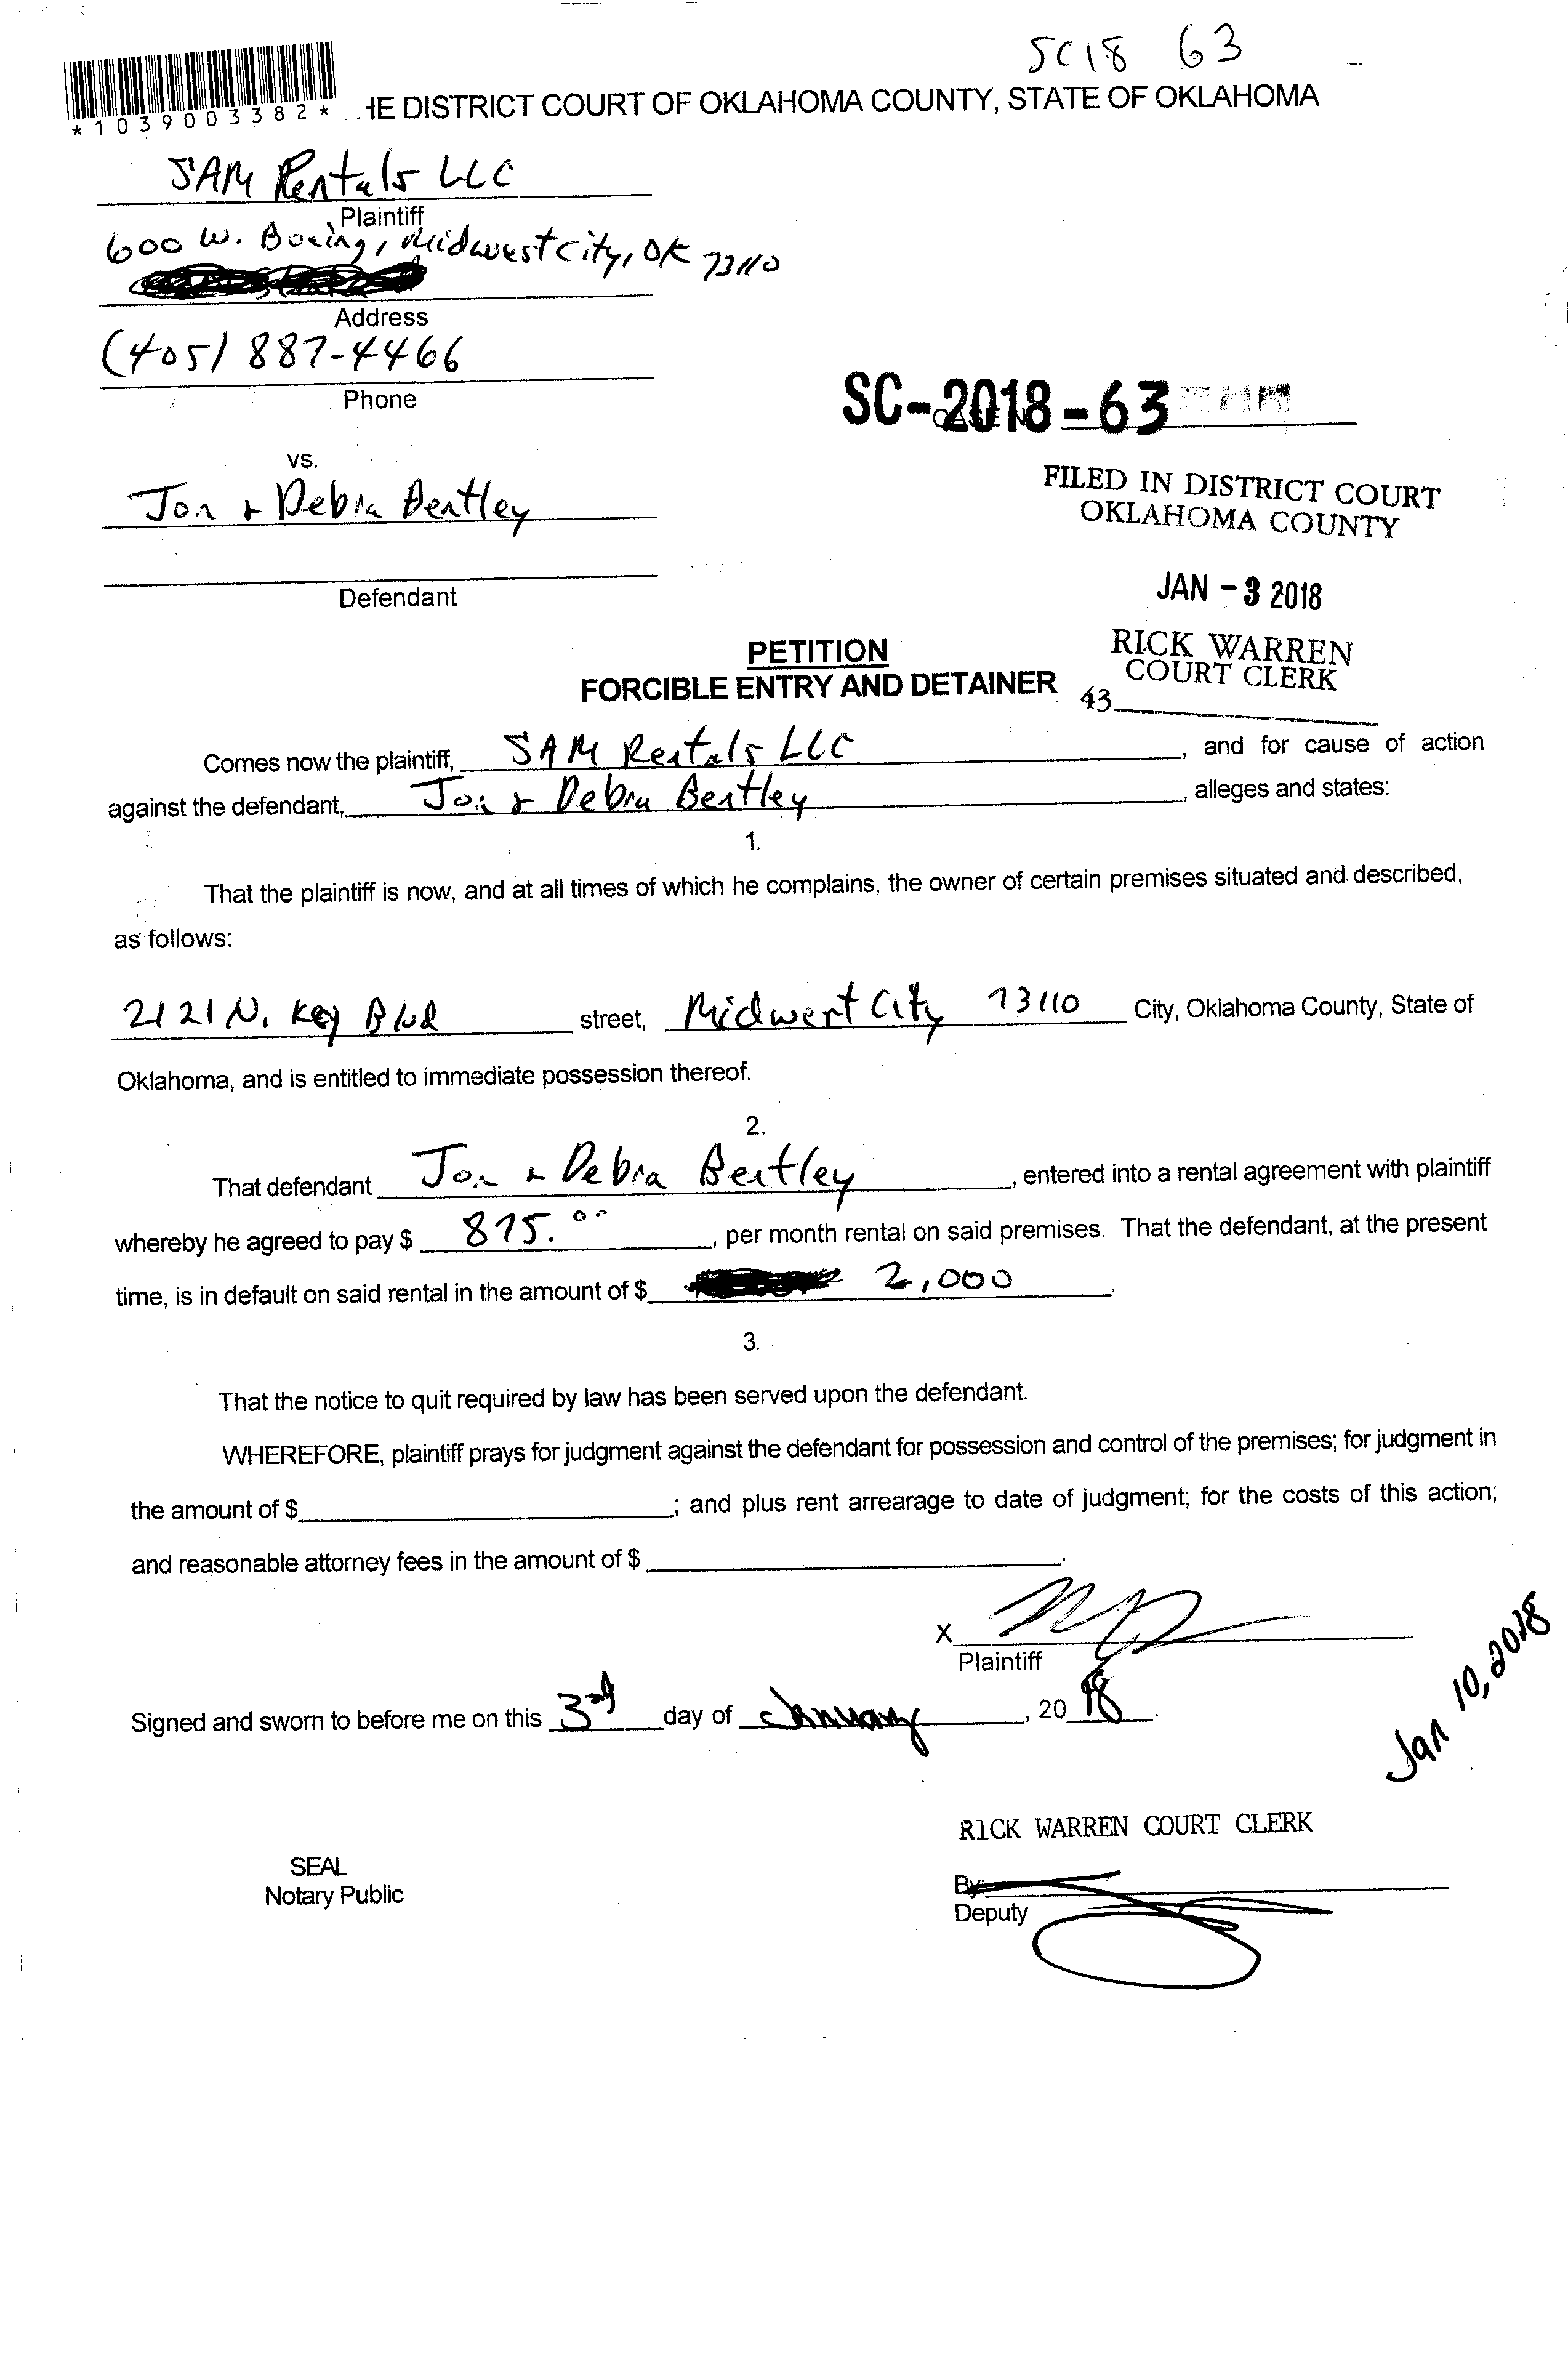 SC18 63
*1039003382* ..HE DISTRICT COURT OF OKLAHOMA COUNTY, STATE OF OKLAHOMA
SAM Rentals LLC
Plaintiff
600 W. Boeing, Midwest City, OK 73110
Address
(405) 887-4466
Phone
SC-2018-63
vs.
Jon & Debra Bentley
FILED IN DISTRICT COURT
OKLAHOMA COUNTY
Defendant
JAN - 3 2018
PETITION
RICK WARREN
COURT CLERK
FORCIBLE ENTRY AND DETAINER
43
Comes now the plaintiff, SAM Rentals LLC, and for cause of action
against the defendant, Jon & Debra Bentley, alleges and states:
1.
That the plaintiff is now, and at all times of which he complains, the owner of certain premises situated and described,
as follows:
2121 N. Key Blvd street, Midwest City 73110 City, Oklahoma County, State of
Oklahoma, and is entitled to immediate possession thereof.
2.
That defendant Jon & Debra Bentley, entered into a rental agreement with plaintiff
whereby he agreed to pay $ 875.00, per month rental on said premises. That the defendant, at the present
time, is in default on said rental in the amount of $ 2,000.
3.
That the notice to quit required by law has been served upon the defendant.
WHEREFORE, plaintiff prays for judgment against the defendant for possession and control of the premises; for judgment in
the amount of $; and plus rent arrearage to date of judgment; for the costs of this action;
and reasonable attorney fees in the amount of $.
X
Plaintiff
Signed and sworn to before me on this 3rd day of January, 2018.
Jan 10, 2018
RICK WARREN COURT CLERK
SEAL
Notary Public
By
Deputy